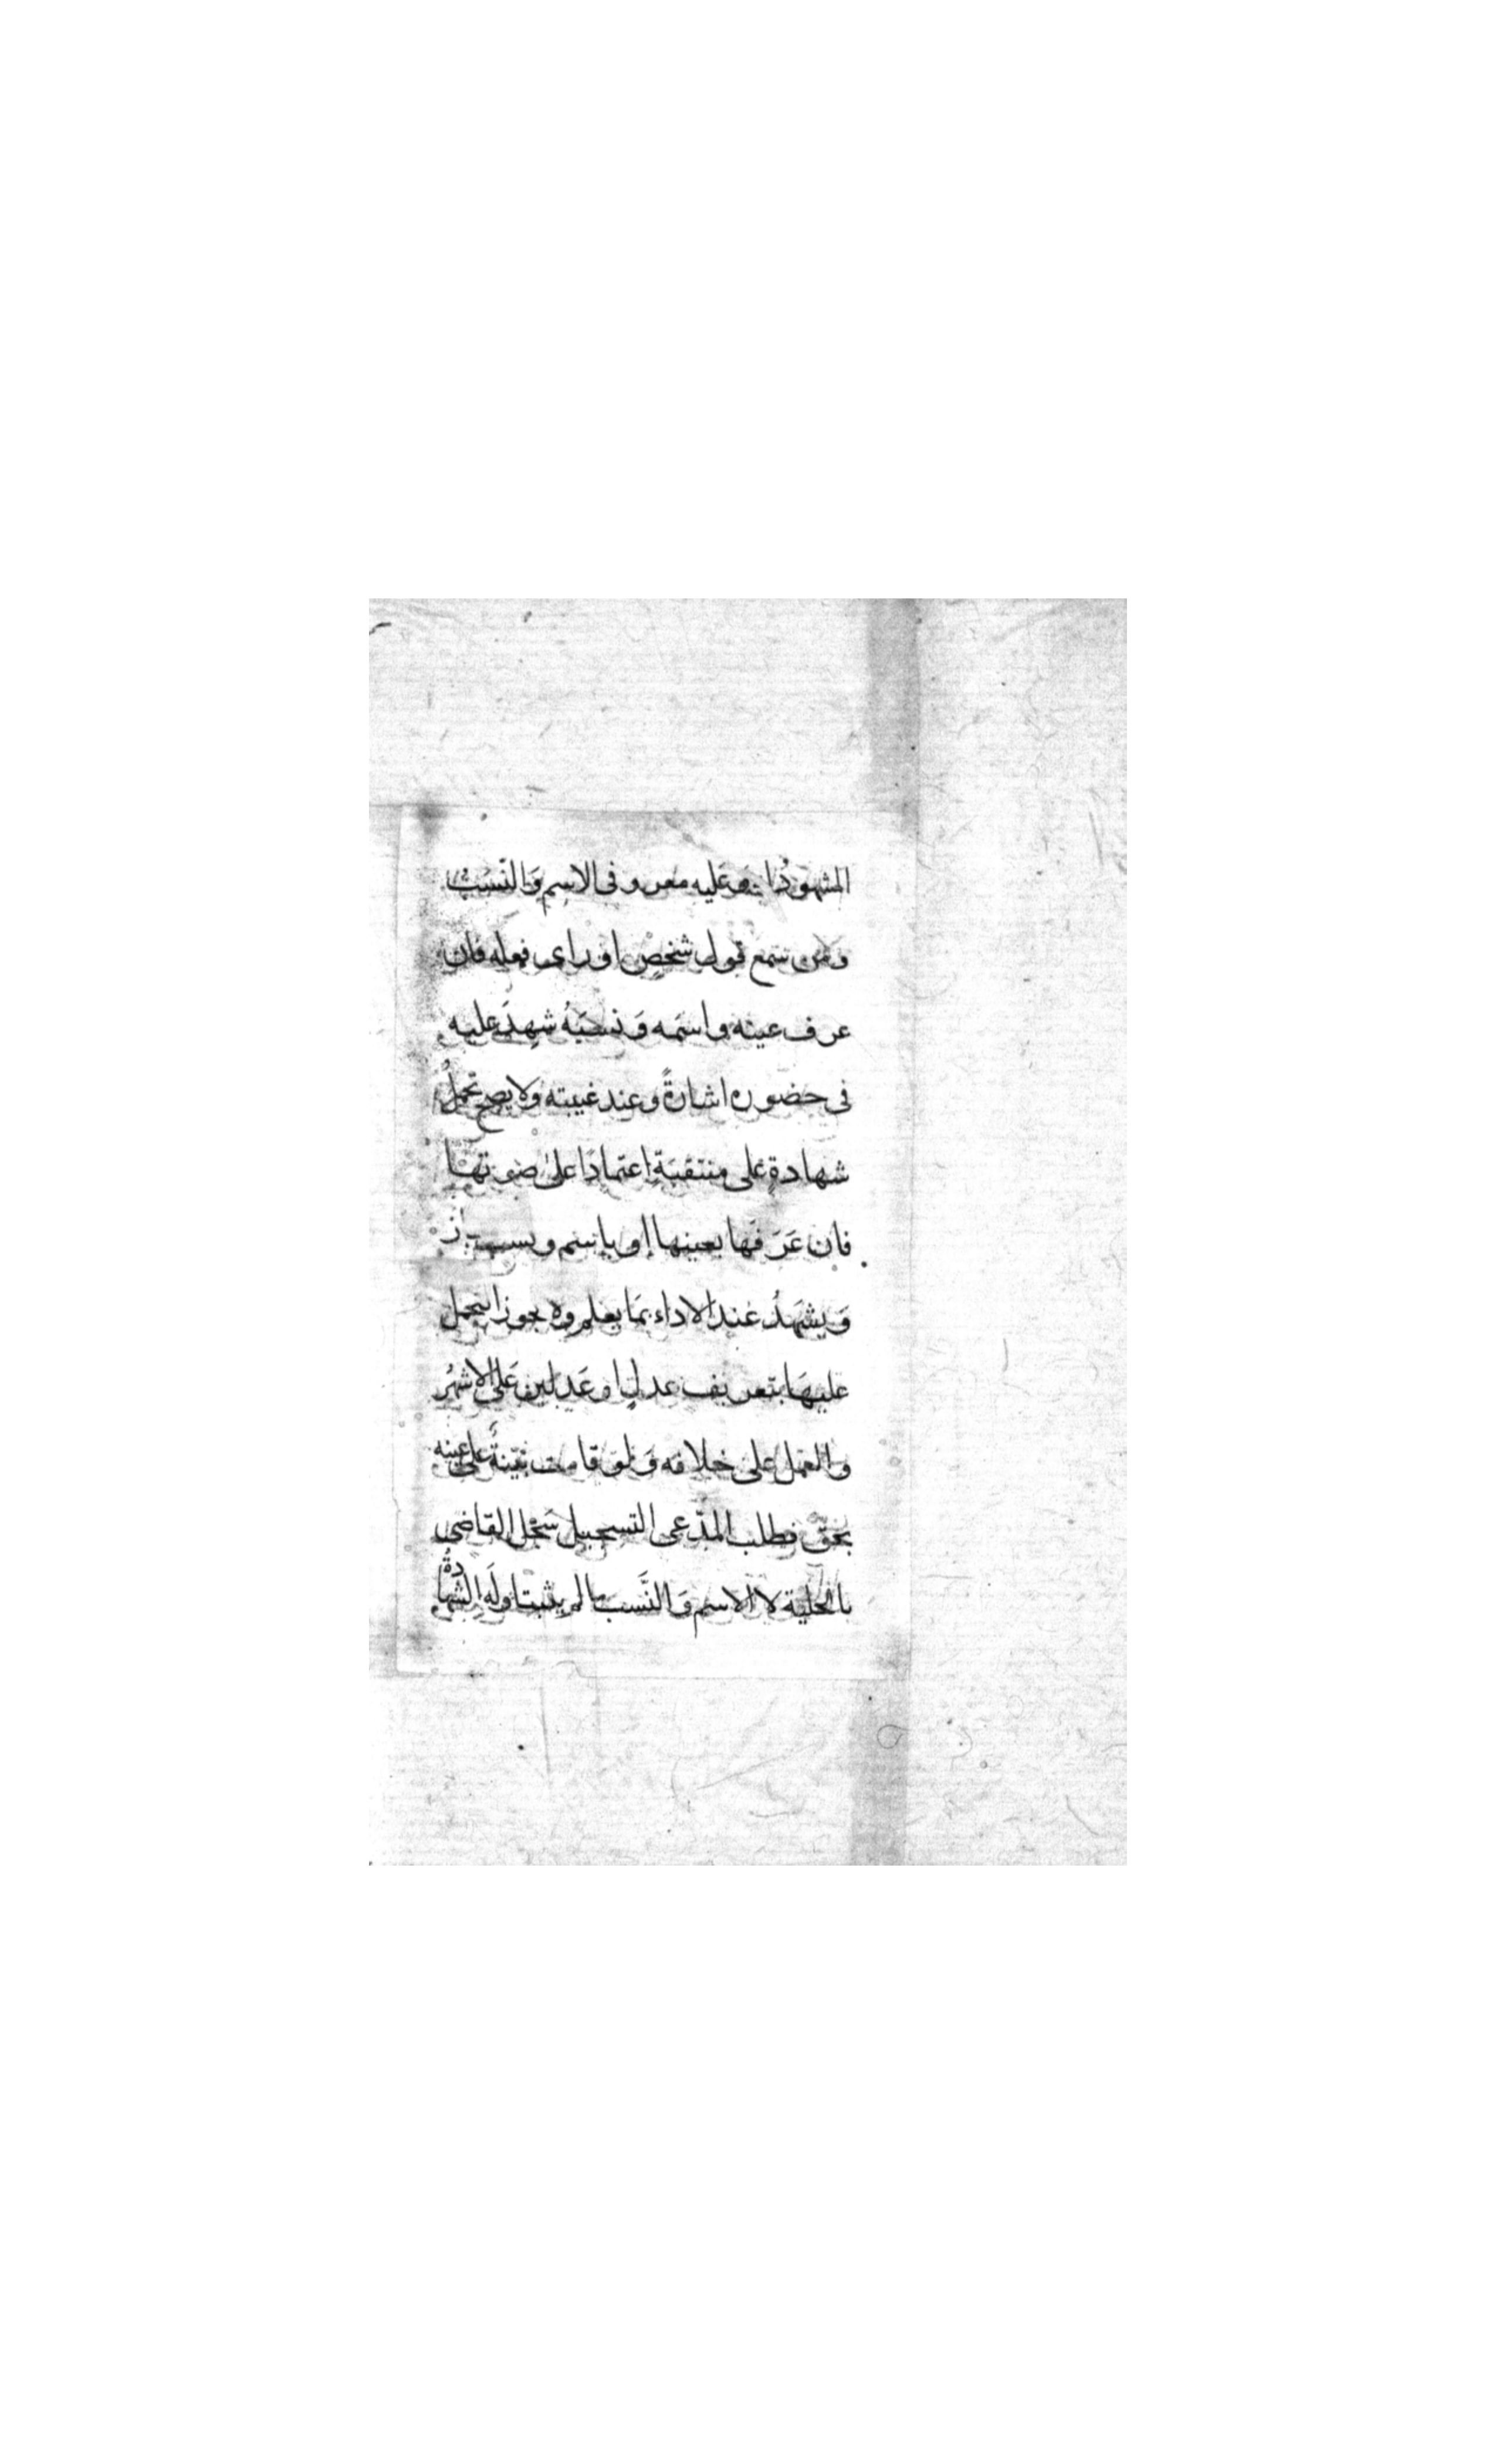 المشهود له وعليه معروفى الاسم وَالنّسَب
ومن سمع قول شخصٍ او راى فعله فان
عرف عينه واسمَه وَنسبَهُ شهدَ عليه
فى حضوره اشارةً وعند غيبته ولا يصح تحملُ
شهادةٍ على منتقبَةٍ اعتمادًا على صوتهَا
فان عَرَفَها بعينها او باسم ونسب جاز
وَيشهَدُ عند الاداء بمَا يعلم ولا يجوز التحمل
عليهَا بتعريف عدلٍ او عَدلين عَلى الاشهُر
والعمَل على خلافه وَلو قامت بَيّنةٌ على عينه
بحقّ فطلب المدّعى التسجيل سَجّل القاضى
بالحلية لا الاسم وَالنَّسب ما لم يثبتا ولَه الشهادةُ